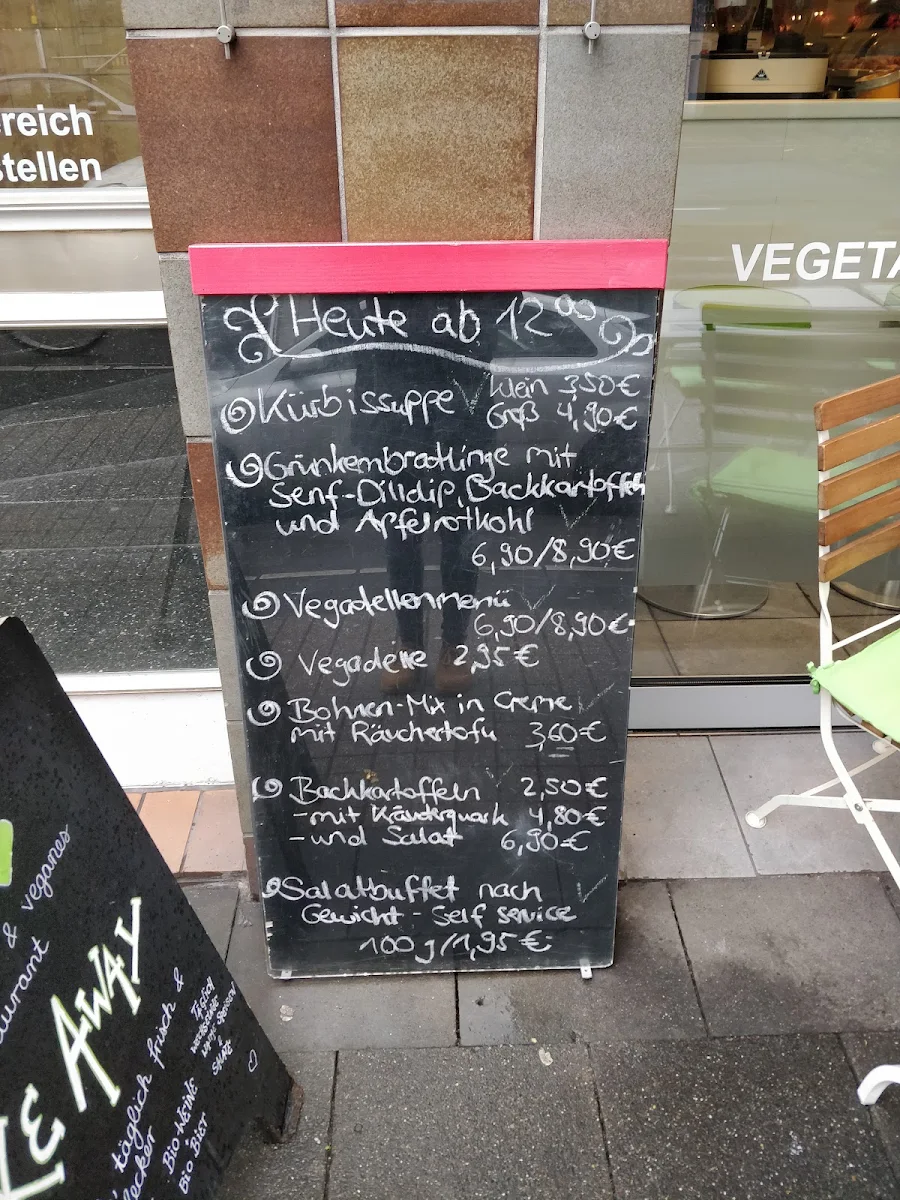 reich
stellen
VEGETA
Heute ab 12⁰⁰
Kürbissuppe klein 3,50€
Groß 4,90€
Grünkernbratlinge mit
Senf-Dilldip, Backkartoffeln
und Apfelrotkohl
6,90/8,90€
Vegatellermenü
6,90/8,90€
Vegadelle 2,95€
Bohnen-Mix in Creme
mit Räuchertofu 3,60€
Backkartoffeln 2,50€
-mit Kräuterquark 4,80€
-und Salat 6,90€
Salatbuffet nach
Gewicht - Self service
100g/1,95€
& veganes
aurant
KE AWAY
täglich frisch &
lecker
TÄGLICH
WECHSELNDE
WARME SPEISEN
&
SALATE
BIO-WEINE
BIO BIER